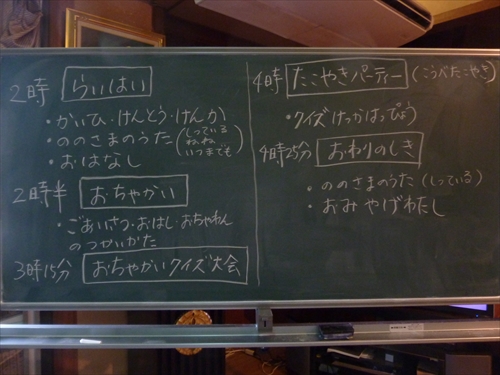 2時 らいはい
・かいひ・けんとう・けんか
・ののさまのうた(しっている
ねてもさめても
いつまでも)
・おはなし
2時半 おちゃかい
・ごあいさつ・おはし・おちゃわん
のつかいかた
3時15分 おちゃかいクイズ大会
4時 たこやきパーティー(こうべたこやき)
・クイズけっかはっぴょう
4時25分 おわりのしき
・ののさまのうた(しっている)
・おみやげわたし